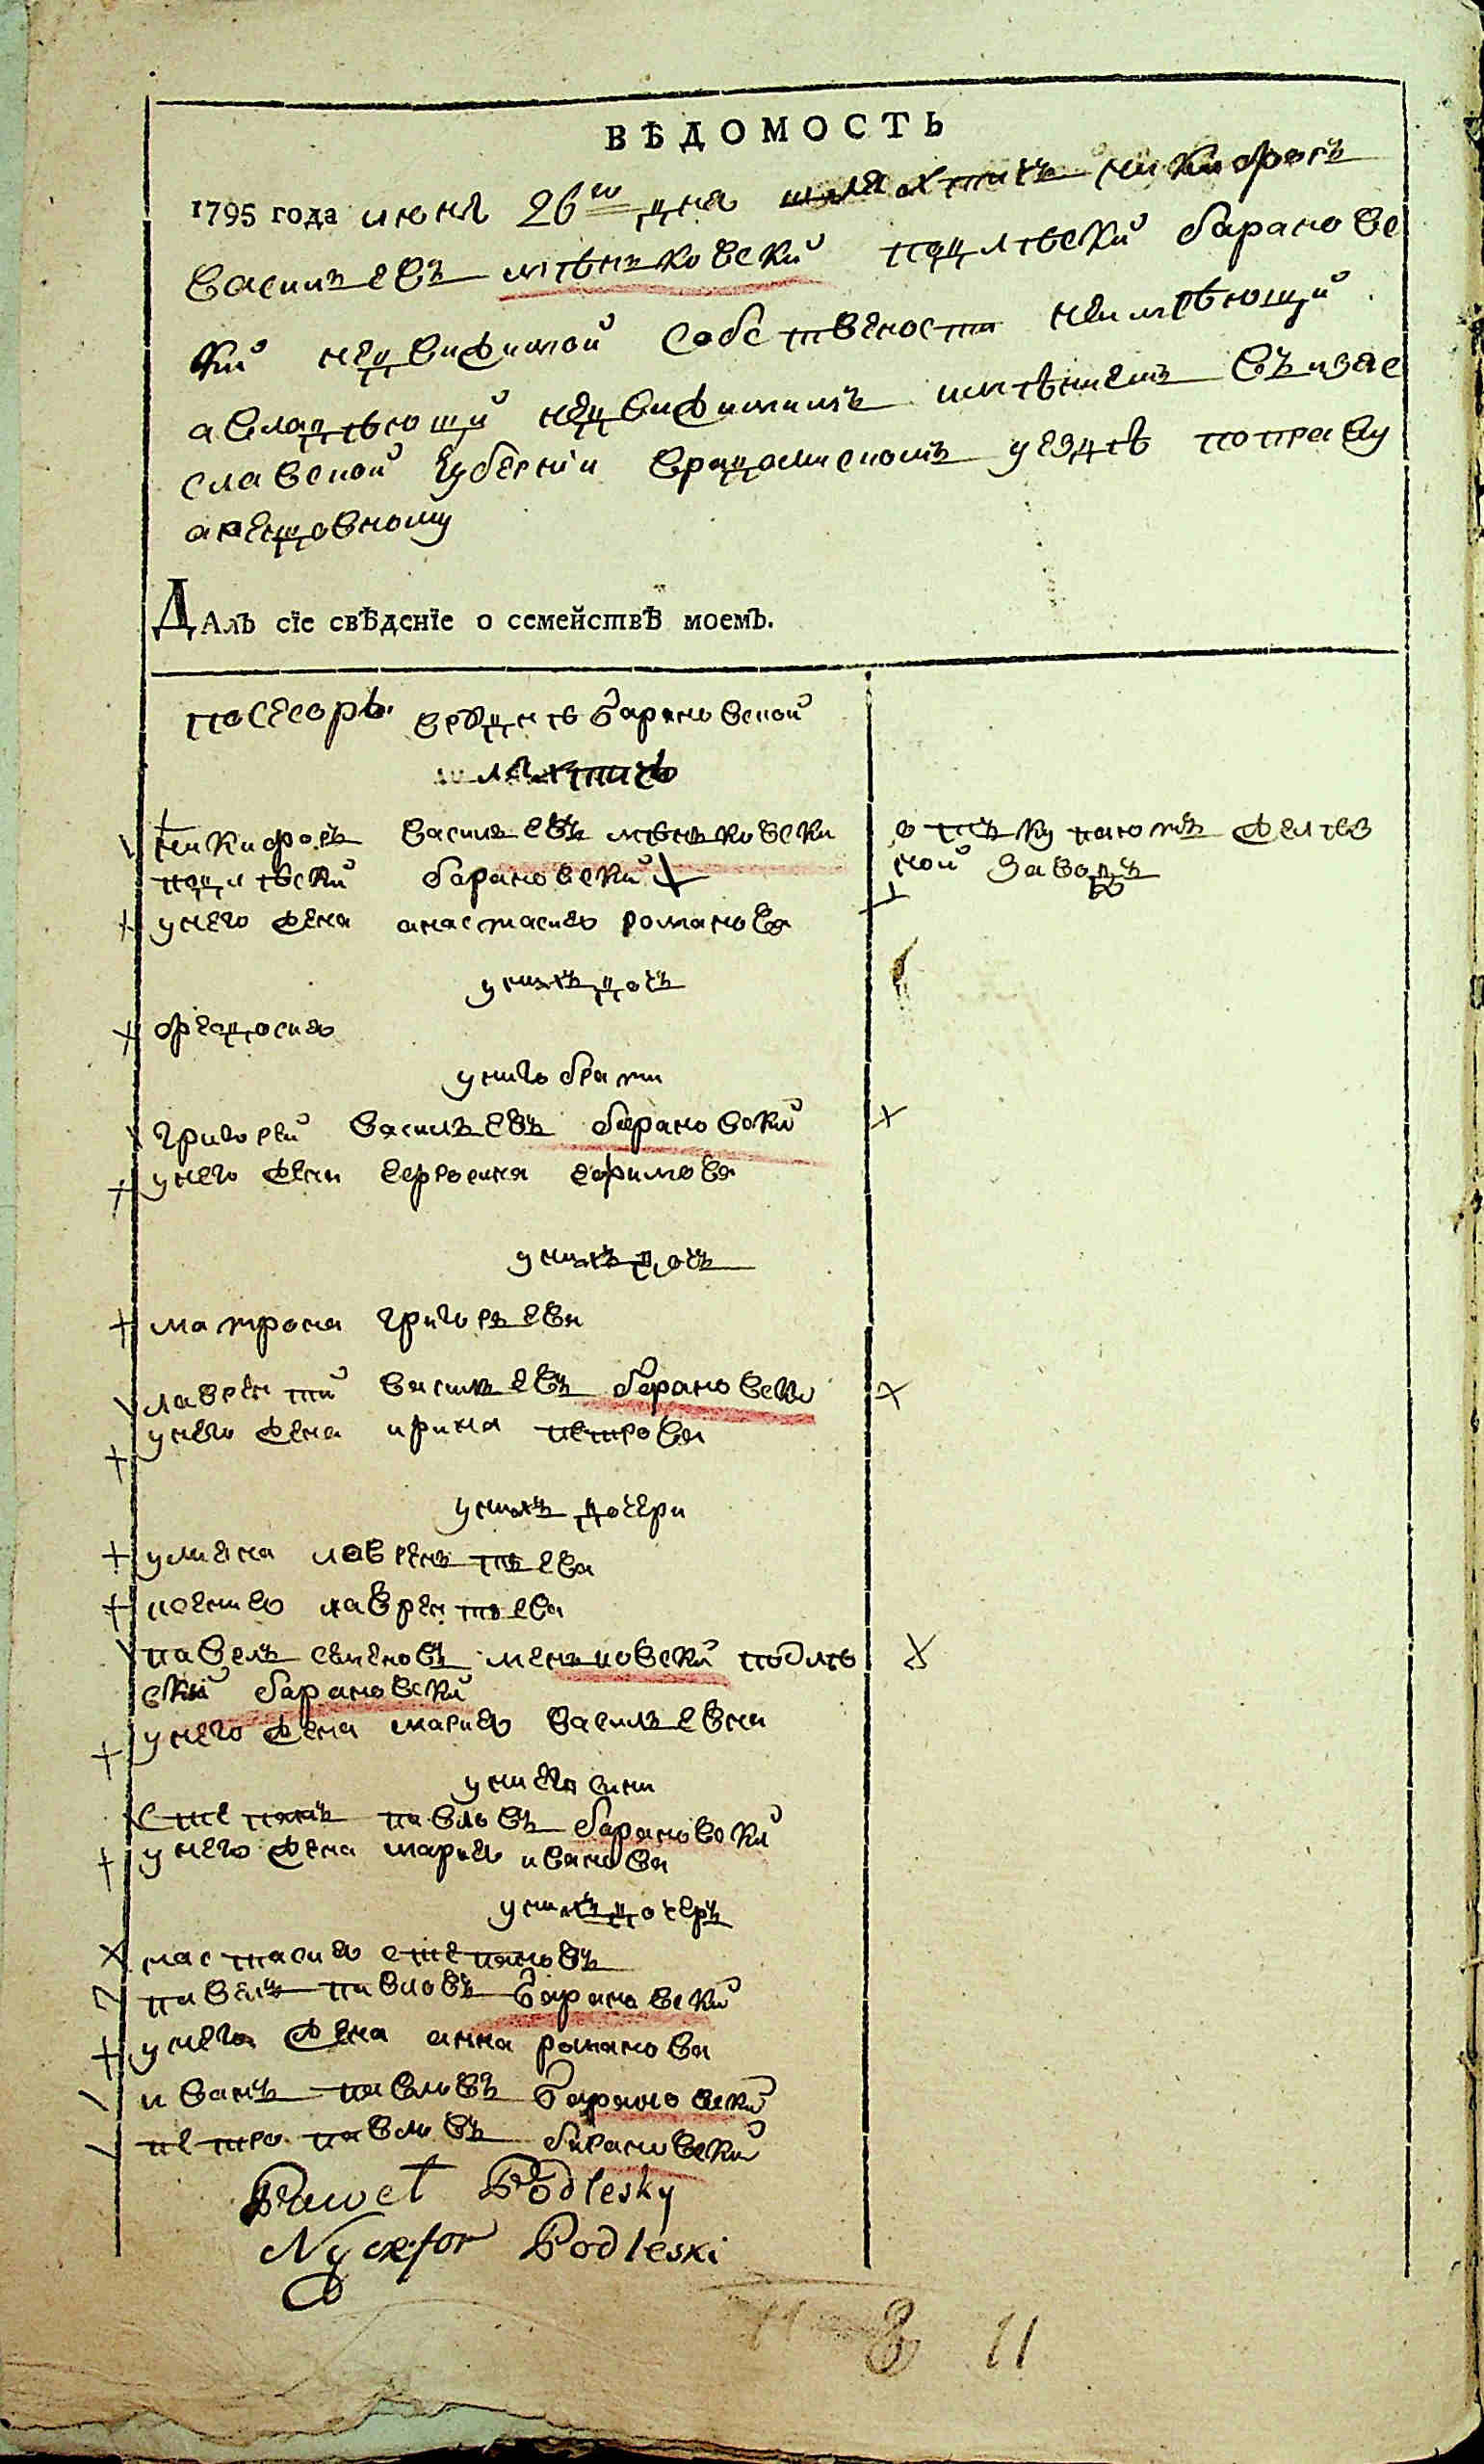 ВѢДОМОСТЬ
1795 года июня 26го дня шляхтичъ никифоръ
васильевъ мѣньковски подлѣски барановс
ки недвижимой собствености неимѣющи
авладѣющи недвижимимъ имѣниемъ въ изяс
славской губернїи врадомиском уездѣ поправу
арендовному
ДАлъ сїе свѣденїе о семействѣ моемъ.
посесоръ вселѣ барановской
шляхтичъ
никифоръ васильевъ мѣньковски
подлѣски барановски
унего жена анастасия романова
унихъ дочъ
феодосия
унего брати
григорей васильевъ барановски
унего жена ефросиня ефимова
унихъ дочъ
матрона григорьева
лаврентий васильевъ барановски
унего жена ирина петрова
унихъ дочери
улияна лаврентьева
ксения лаврентьева
павелъ семеновъ меньковски подлѣ
ски барановски
унего жена мария васильевна
унего сини
степанъ павловъ барановски
унего жена мария иванова
унихъ дочеръ
настасия степановъ
павелъ павловъ барановски
унего жена анна романова
иванъ павловъ барановски
петро павловъ барановски
Pawel Podlesky
Nyczefor Podleski
11